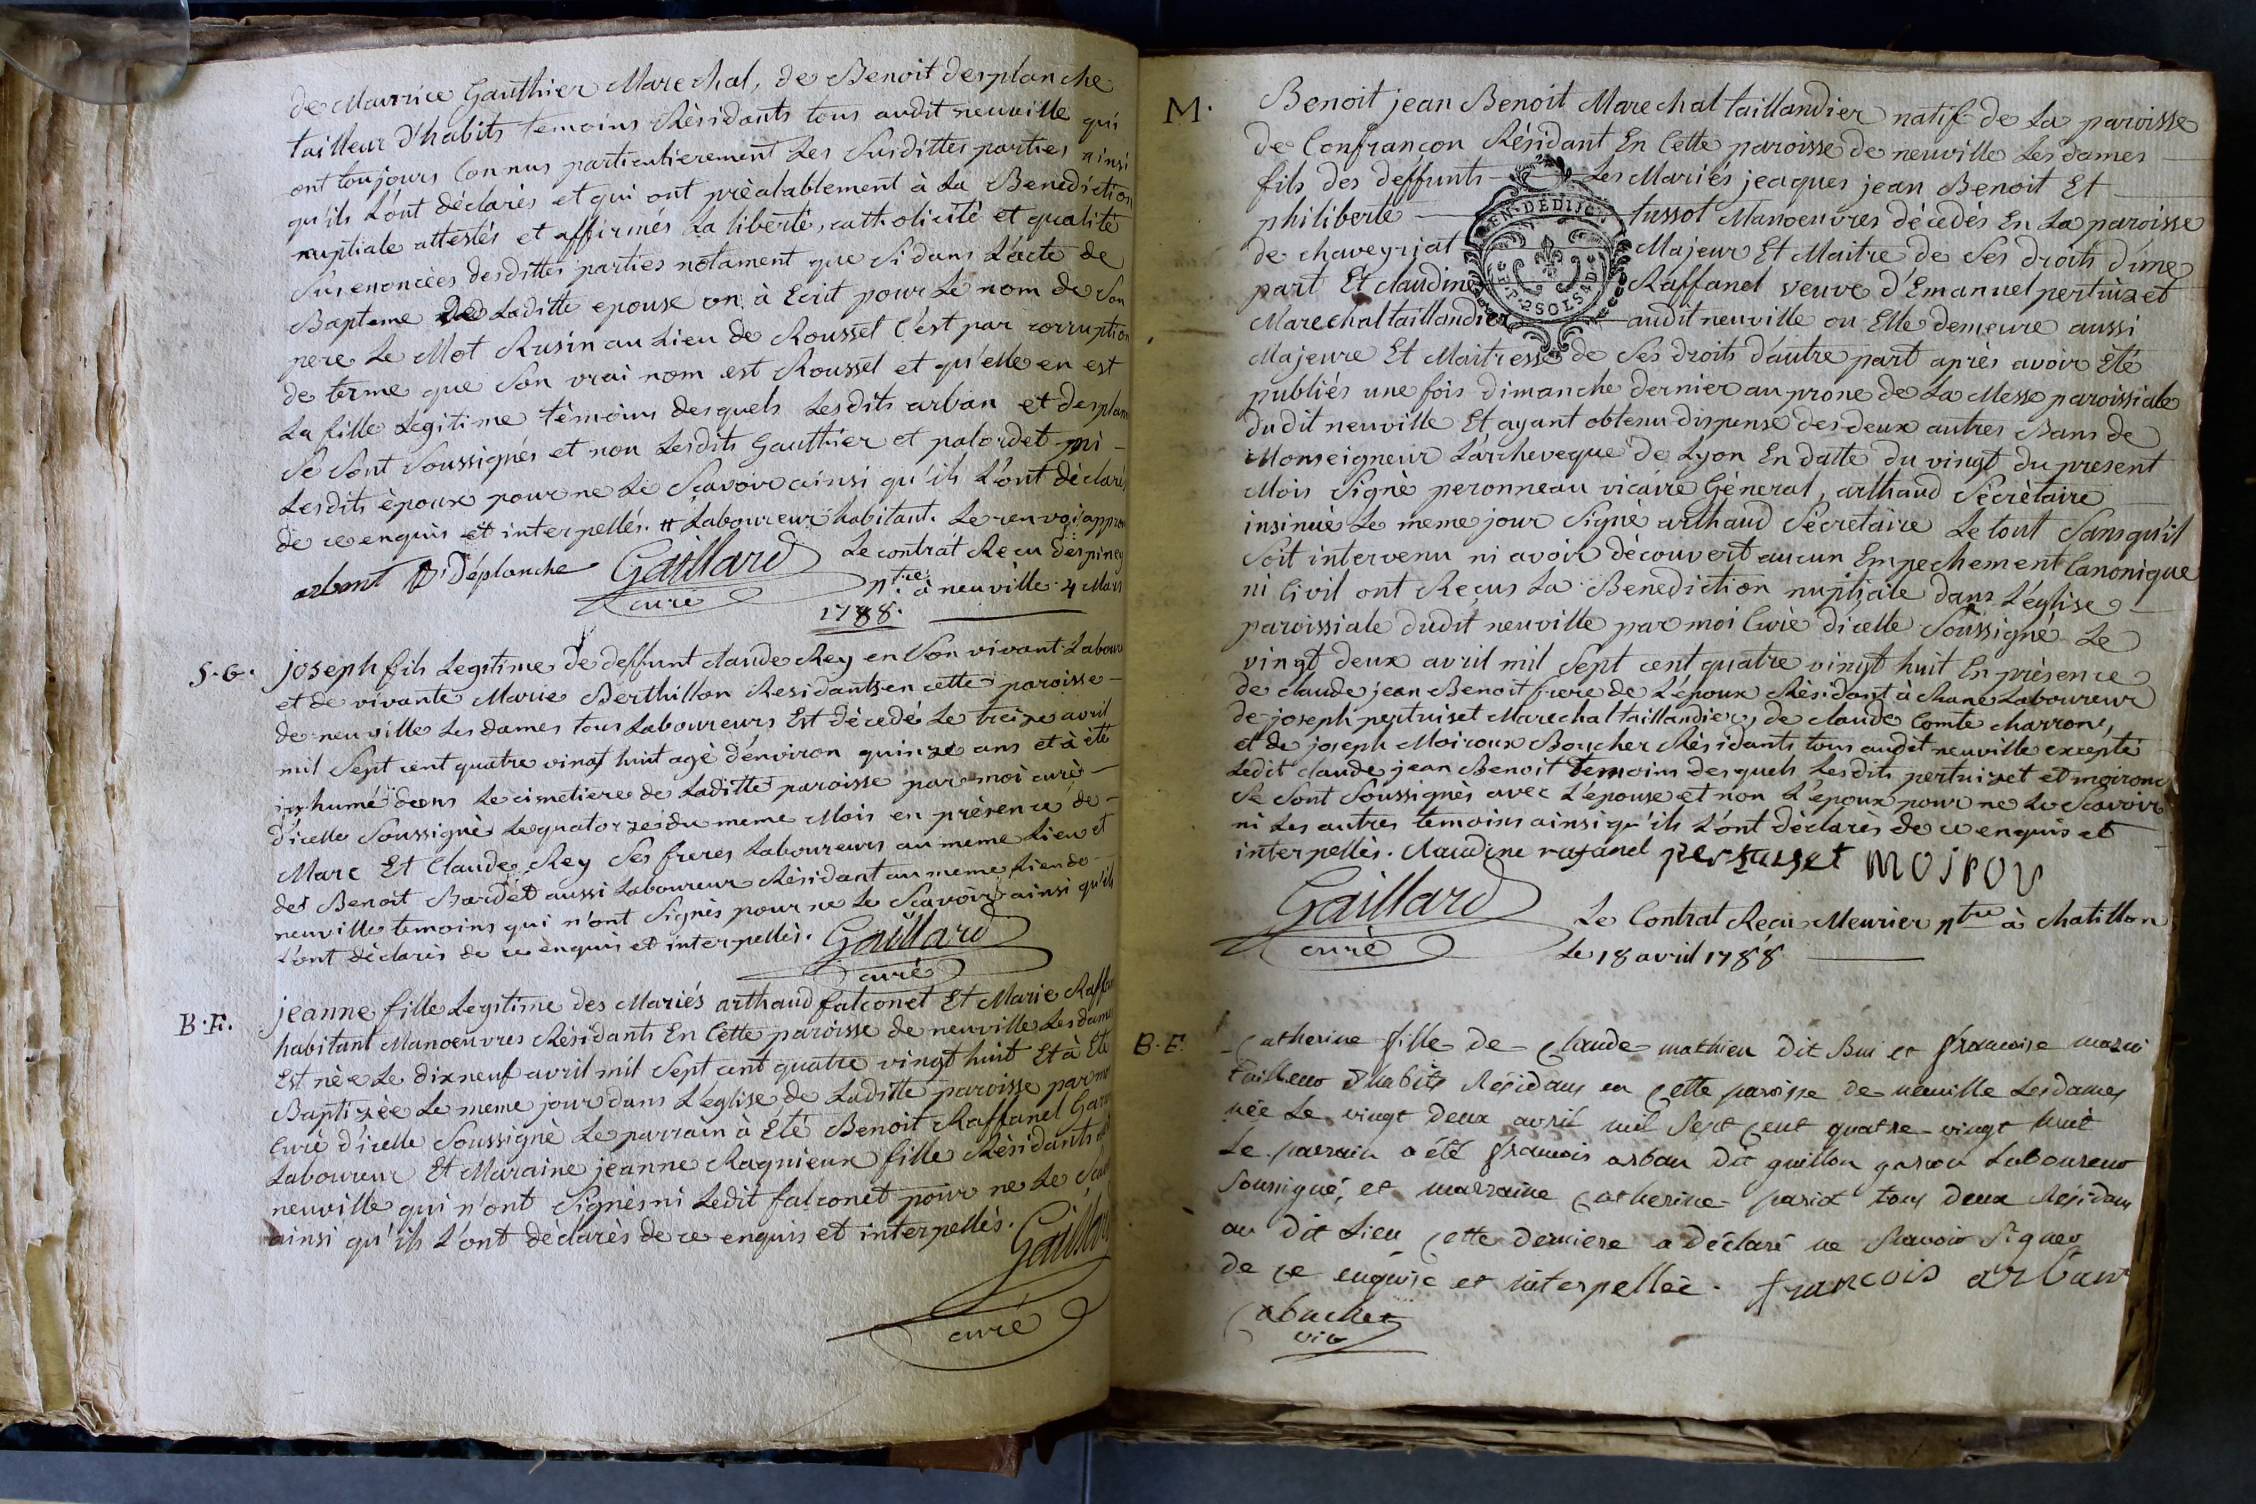 de Maurice Gauthier Marechal, de Benoit desplanche
tailleur d'habits temoins Résidants tous audit neuville qui
ont toujours Connus particulierement Les Susdittes parties ainsi
qu'ils L'ont déclarés et qui ont prèalablement à La Benediction
nuptiale attestés et affirmés La liberté, catholicité et qualité
Susenoncées desdittes parties notament que Si dans L'acte de
Bapteme de Laditte epouse on à Ecrit pour Le nom de Son
pere Le Mot Rusin au Lieu de Roussel C'est par corruption
de terme que Son vrai nom est Roussel et qu'elle en est
La fille Legitime témoins desquels Lesdits arban et desplan
Se Sont Soussignés et non Lesdits Gauthier et palordet ni
Lesdits époux pour ne Le Scavoir ainsi qu'ils L'ont déclaré,
de ce enquis et interpellés. # Laboureur habitant. Le renvoi appro
arbant B. Déplanche Gaillard curé
Le contrat Recu despiney
ntre. à neuville 4 Mars
1788.
S.G. joseph fils Legitime de deffunt claude Rey en Son vivant Labour
et de vivante Marie Berthillon Residants en cette paroisse
de neuville Les dames tous Laboureurs Est décedé Le treize avril
mil Sept cent quatre vingt huit agé d'environ quinze ans et à été
inhumé dans Le cimetiere de Laditte paroisse par moi curé
d'icelle Soussigné Le quatorze du meme Mois en présence de
Marc Et Claude Rey Ses freres Laboureurs au meme Lieu et
de Benoit Bardet aussi Laboureur Résidant au meme Lieu de
neuville temoins qui n'ont Signés pour ne Le Scavoir ainsi qu'ils
L'ont déclarés de ce enquis et interpellés. Gaillard
curé
B.F. jeanne fille Legitime des Mariés arthaud falconet Et Marie Raffan
habitant Manoeuvres Résidants En Cette paroisse de neuville Les dames
Est née Le dix neuf avril mil Sept cent quatre vingt huit Et à Eté
Baptizée Le meme jour dans L'église de Laditte paroisse par moi
Curé d'icelle Soussigné Le parrain à Eté Benoit Raffanel Garçon
Laboureur Et Maraine jeanne Ragnieux fille Résidants
neuville qui n'ont Signés ni Ledit falconet pour ne Le Sca
ainsi qu'ils L'ont déclarés de ce enquis et interpellés. Gaillard
curé
M. Benoit jean Benoit Marechal taillandier natif de La paroisse
de Confrançon Résidant En Cette paroisse de neuville Les dames
fils des deffunts Les Mariés jacques jean Benoit Et
philiberte tussot Manoeuvres décedés En La paroisse
de chaveyriat Majeur Et Maitre de Ses droits d'une
part Et claudine Raffanel veuve d'Emanuel pertuizet
Marechal taillandier audit neuville ou Elle demeure aussi
GEN. DE DIJON
P. 2 SOLS 4 D
Majeure Et Maitresse de Ses droits d'autre part après avoir Eté
publiés une fois dimanche dernier au prone de La Messe paroissiale
dudit neuville Et ayant obtenu dispense des deux autres Bans de
Monseigneur L'archeveque de Lyon En datte du vingt du present
Mois Signé peronneau vicaire Géneral, arthaud Sécrètaire
insinué Le meme jour Signé arthaud Secretaire Le tout Sans qu'il
Soit intervenu ni avoir découvert aucun Empechement Canonique
ni Civil ont Reçus La Benediction nuptiale dans L'église
paroissiale dudit neuville par moi Curé d'icelle Soussigné Le
vingt deux avril mil Sept cent quatre vingt huit En présence
de claude jean Benoit frere de L'époux Résidant à Chane Laboureur
de joseph pertuiset Marechal taillandier, de claude Comte charron,
et de joseph Moiroux Boucher Résidants tous audit neuville excepté
Ledit claude jean Benoit temoins desquels Lesdits pertuizet et moiroux
Se Sont Soussignés avec L'épouse et non L'époux pour ne Le Scavoir
ni Les autres temoins ainsi qu'ils L'ont déclarés de ce enquis et
interpellés. claudine rafanel pertuiset moirou
Gaillard
curé
Le Contrat Recu Meurier ntre à chatillon
Le 18 avril 1788
B.F. Catherine fille de Claude mathieu dit Bui et françoise
tailleur d'habits Résidans en Cette paroisse de neuville Les dames
née Le vingt deux avril mil Sept Cent quatre-vingt huit
Le parrain a été françois arban dit guillon garcon Laboureur
Soussigné, et marraine Catherine tous deux Résidans
au dit Lieu Cette derniere a déclaré ne Scavoir Signer
de Ce enquise et interpellée. francois arbant
Cabuchet
vic